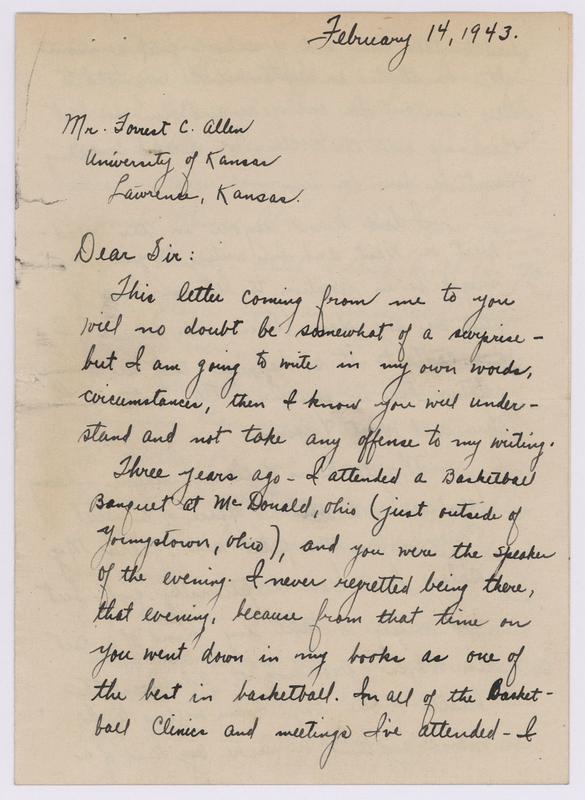 February 14, 1943.
Mr. Forrest C. Allen
University of Kansas
Lawrence, Kansas.
Dear Sir:
This letter coming from me to you
will no doubt be somewhat of a surprise -
but I am going to write in my own words,
circumstances, then I know you will under-
stand and not take any offense to my writing.
Three years ago - I attended a Basketball
Banquet at McDonald, Ohio (just outside of
Youngstown, Ohio), and you were the speaker
of the evening. I never regretted being there,
that evening, because from that time on
you went down in my books as one of
the best in basketball. In all of the Basket-
ball Clinics and meetings I've attended - I